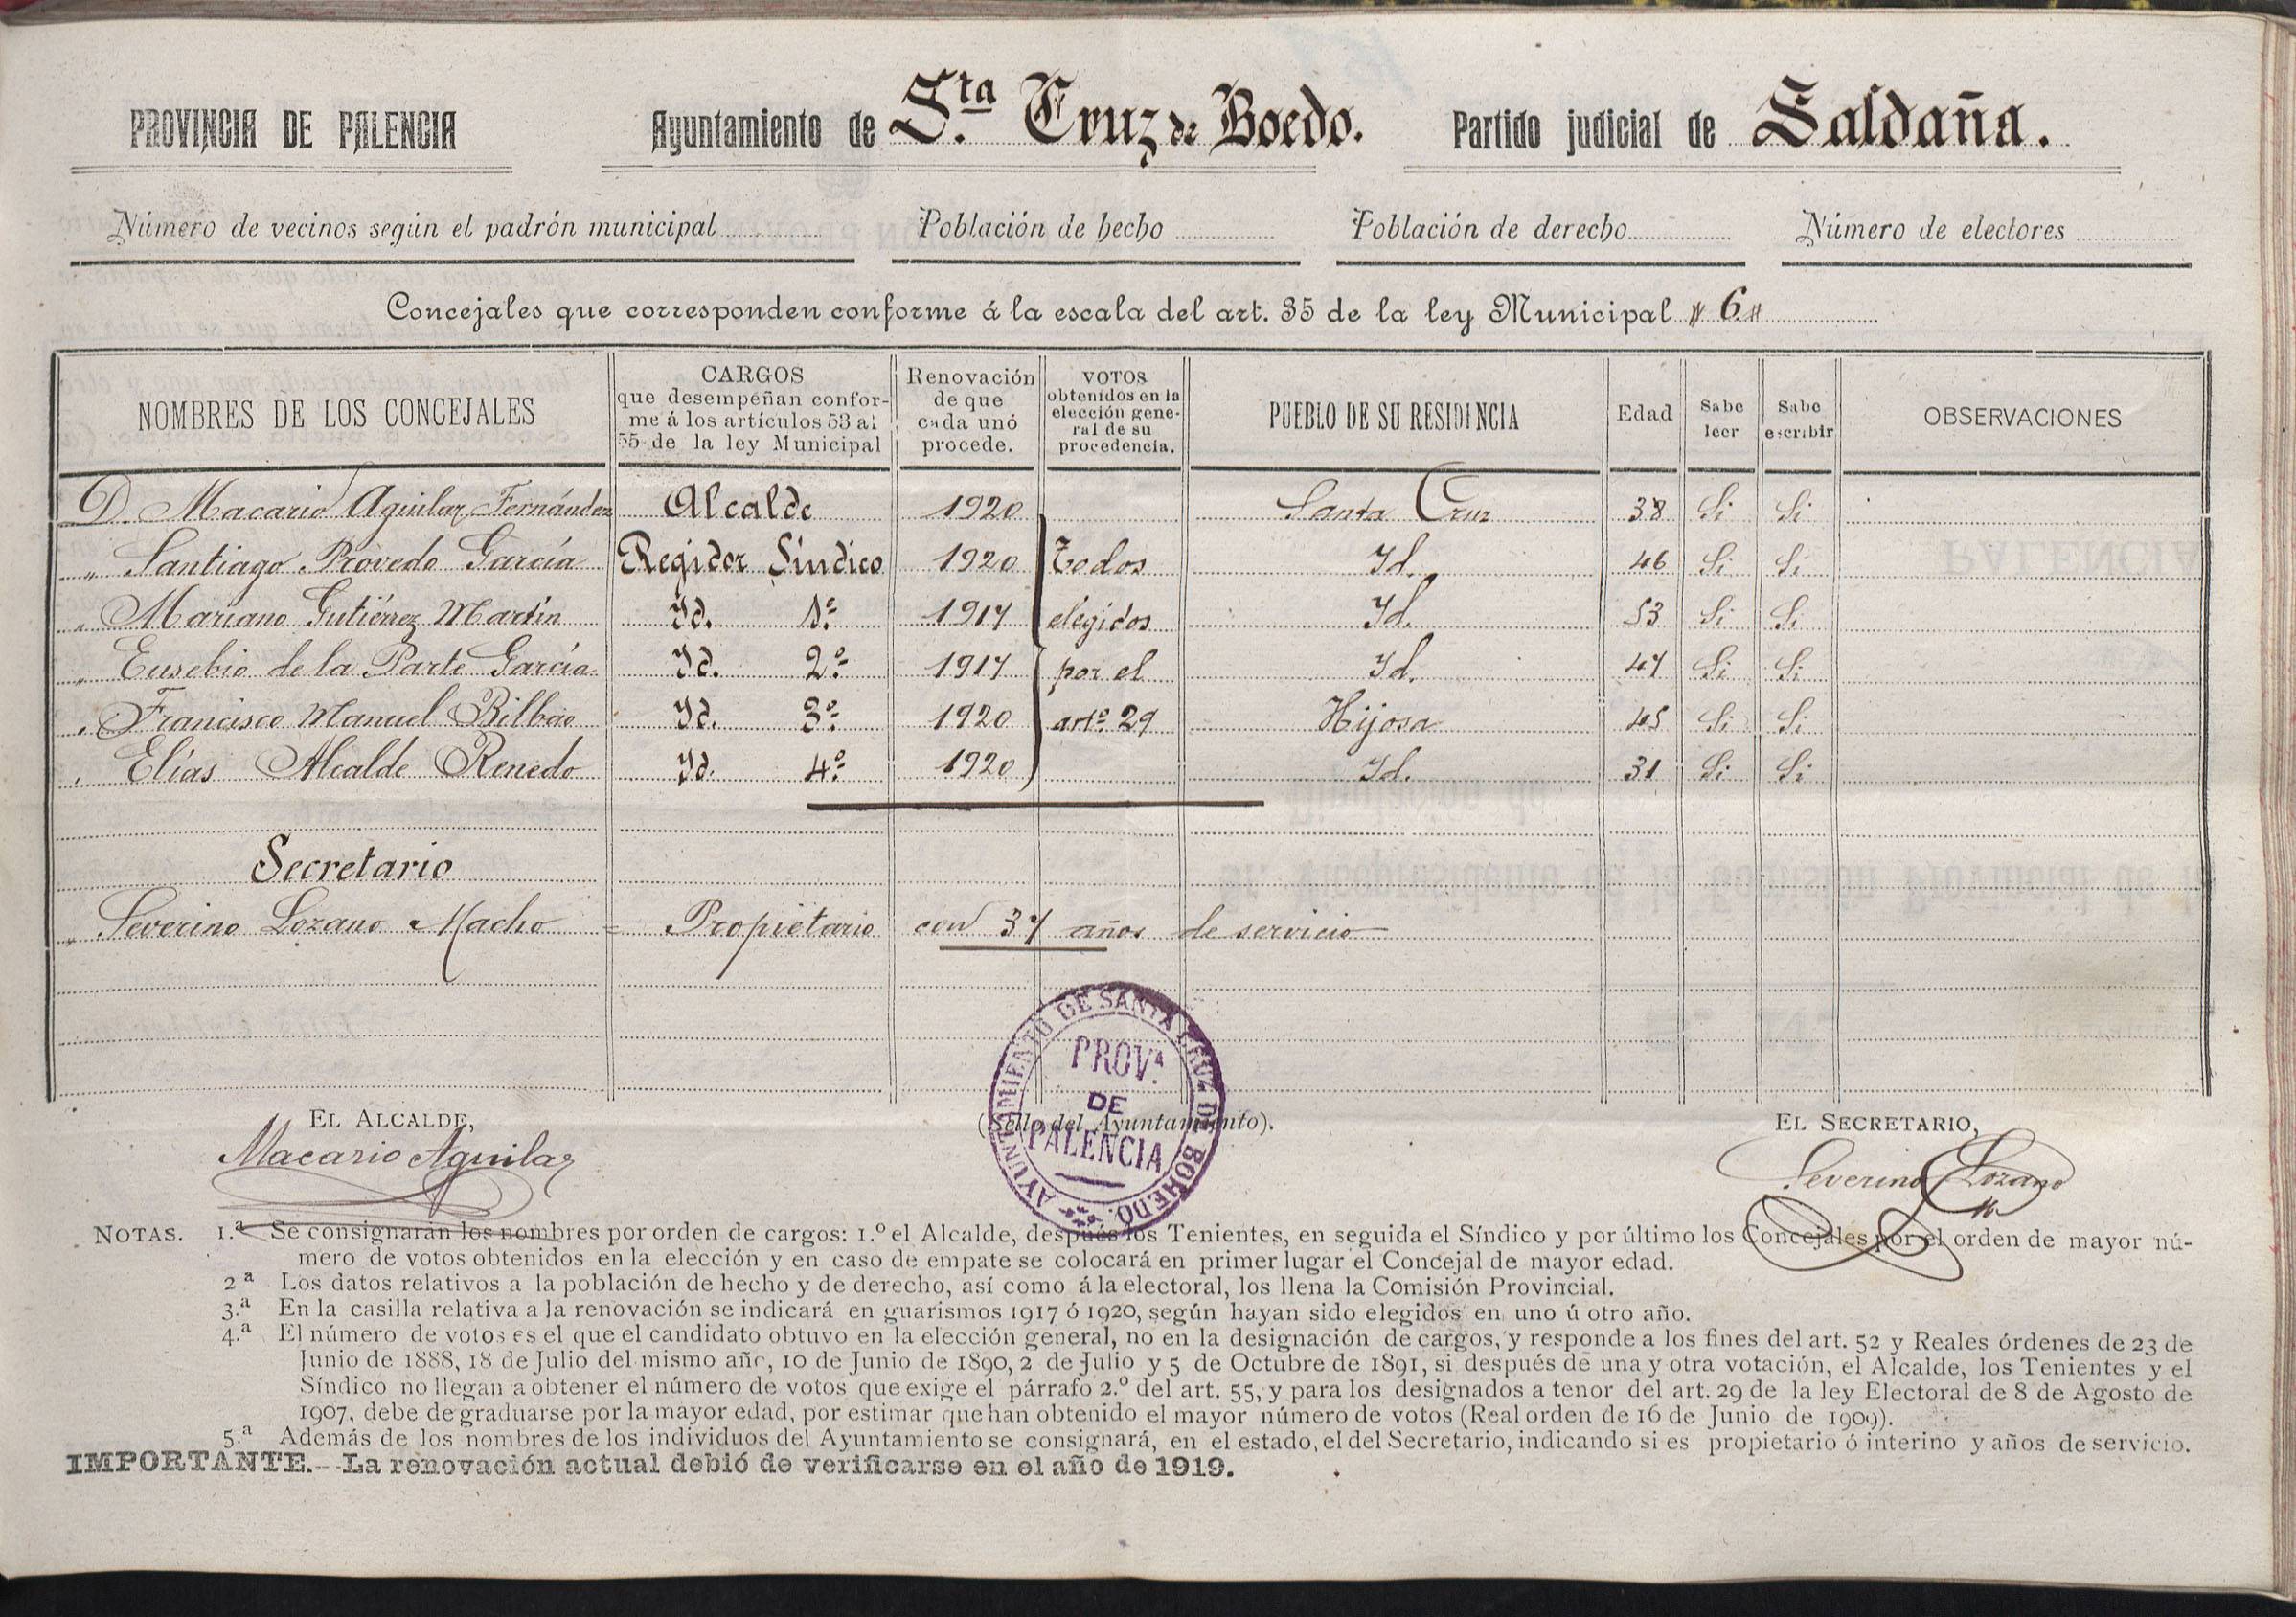 PROVINCIA DE PALENCIA Ayuntamiento de Sta Cruz de Boedo. Partido judicial de Saldaña.
Número de vecinos según el padrón municipal Población de hecho Población de derecho Número de electores
Concejales que corresponden conforme á la escala del art. 35 de la ley Municipal " 6 "
NOMBRES DE LOS CONCEJALES
CARGOS
que desempeñan confor-
me á los artículos 53 al
55 de la ley Municipal
Renovación
de que
cada uno
procede.
VOTOS
obtenidos en la
elección gene-
ral de su
procedencia.
PUEBLO DE SU RESIDENCIA
Edad
Sabe
leer
Sabe
escribir
OBSERVACIONES
D. Macario Aguilar Fernández Alcalde 1920 Santa Cruz 38 Si Si
" Santiago Provedo García Regidor Síndico 1920 Todos Id. 46 Si Si
" Mariano Gutiérrez Martín Id. 1º 1917 elegidos Id. 53 Si Si
" Eusebio de la Parte García Id. 2º 1917 por el Id. 47 Si Si
" Francisco Manuel Bilbao Id. 3º 1920 artº 29 Hijosa 45 Si Si
" Elías Alcalde Renedo Id. 4º 1920 Id. 31 Si Si
Secretario
" Severino Lozano Macho = Propietario con 37 años de servicio
EL ALCALDE,
Macario Aguilar
(Sello del Ayuntamiento).
AYUNTAMIENTO DE SANTA CRUZ DE BOHEDO
PROVA.
DE
PALENCIA
EL SECRETARIO,
Severino Lozano
M
NOTAS. 1.ª Se consignarán los nombres por orden de cargos: 1.º el Alcalde, después los Tenientes, en seguida el Síndico y por último los Concejales por el orden de mayor nú-
mero de votos obtenidos en la elección y en caso de empate se colocará en primer lugar el Concejal de mayor edad.
2ª Los datos relativos a la población de hecho y de derecho, así como á la electoral, los llena la Comisión Provincial.
3.ª En la casilla relativa a la renovación se indicará en guarismos 1917 ó 1920, según hayan sido elegidos en uno ú otro año.
4.ª El número de votos es el que el candidato obtuvo en la elección general, no en la designación de cargos, y responde a los fines del art. 52 y Reales órdenes de 23 de
Junio de 1888, 18 de Julio del mismo año, 10 de Junio de 1890, 2 de Julio y 5 de Octubre de 1891, si después de una y otra votación, el Alcalde, los Tenientes y el
Síndico no llegan a obtener el número de votos que exige el párrafo 2.º del art. 55, y para los designados a tenor del art. 29 de la ley Electoral de 8 de Agosto de
1907, debe de graduarse por la mayor edad, por estimar que han obtenido el mayor número de votos (Real orden de 16 de Junio de 1909).
5.ª Además de los nombres de los individuos del Ayuntamiento se consignará, en el estado, el del Secretario, indicando si es propietario ó interino y años de servicio.
IMPORTANTE.--La renovación actual debió de verificarse en el año de 1919.